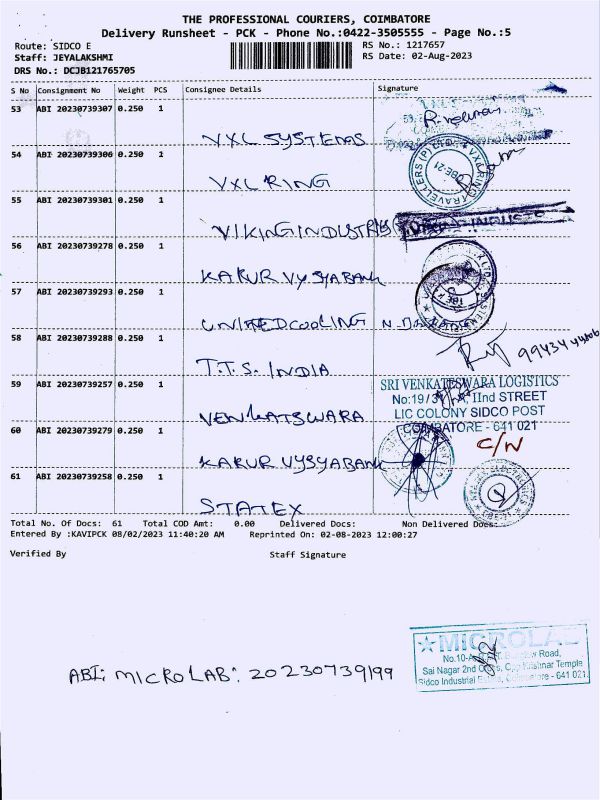 THE PROFESSIONAL COURIERS, COIMBATORE
Delivery Runsheet - PCK - Phone No.:0422-3505555 - Page No.:5
Route: SIDCO E RS No.: 1217657
Staff: JEYALAKSHMI RS Date: 02-Aug-2023
DRS No.: DCJB121765705
S No Consignment No Weight PCS Consignee Details Signature
53 ABI 20230739307 0.250 1
VXL SYSTEMS
54 ABI 20230739306 0.250 1
VXL RING
55 ABI 20230739301 0.250 1
VIKING INDUSTRIES
56 ABI 20230739278 0.250 1
KARUR VYSYABANK
57 ABI 20230739293 0.250 1
UNITED COOLING
58 ABI 20230739288 0.250 1
T.T.S. INDIA
59 ABI 20230739257 0.250 1
SRI VENKATESWARA LOGISTICS
No:19/3 IInd STREET
LIC COLONY SIDCO POST
COIMBATORE - 641 021
VENKATSWARA
60 ABI 20230739279 0.250 1
C/N
KARUR VYSYABANK
61 ABI 20230739258 0.250 1
STATEX
Total No. Of Docs: 61 Total COD Amt: 0.00 Delivered Docs: Non Delivered Docs:
Entered By :KAVIPCK 08/02/2023 11:40:20 AM Reprinted On: 02-08-2023 12:00:27
Verified By Staff Signature
ABI: MICROLAB: 20230739199
MICROLAB
Road,
Sai Nagar 2nd Temple
Sidco Industrial - 641 021.